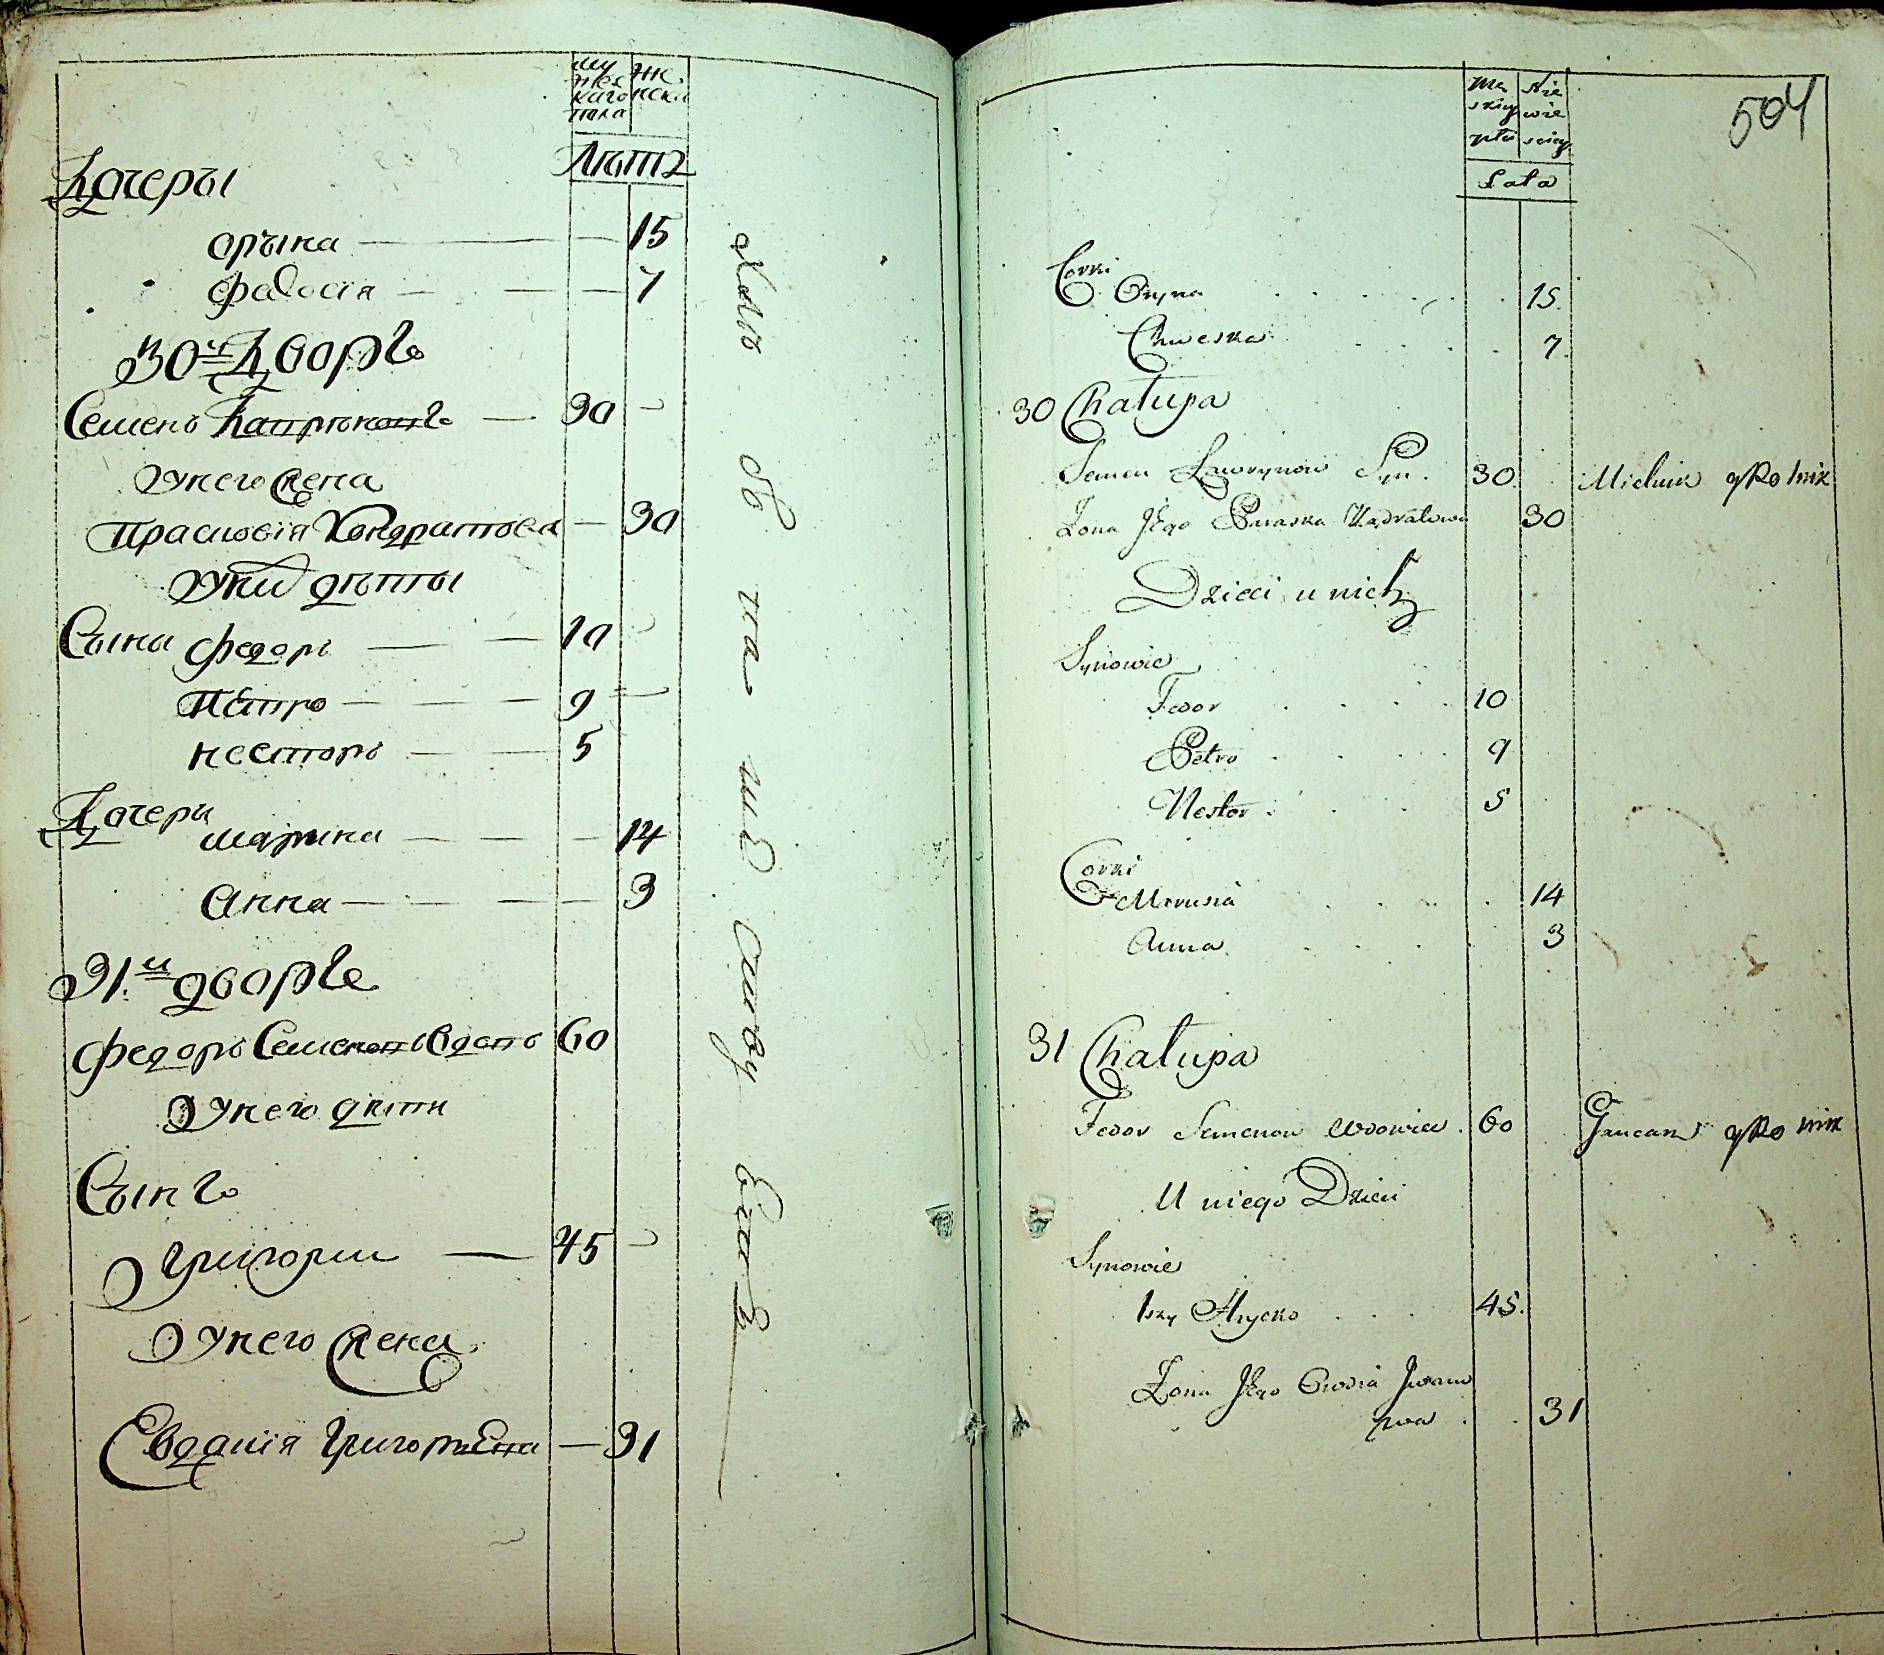 му
жес
каго
пола
же
нска
Лѣтъ
Дочеры
орына — 15
фадосія — 7
30й Дворъ
Семенъ — 30
Унего жена
прасковія Кондратова — 30
Уних дѣты
Сыны федоръ — 10
Петро — 9
несторъ — 5
Дочеры
марина — 14
Анна — 3
31й дворъ
федоръ Семеновъ Вдовъ 60
Унего дѣти
Сынъ
Григорий — 45
Унего жена
Евдокія Григорьева — 31
504
Mę
skiey
płci
Nie
wie
sciey
Lata
Corki
Oryna 15.
Chweska 7.
30 Chałupa
Semen Ławrynow Syn. 30. Mielnik
Zona Jego Paraska Kądratowa 30
Dzieci u nich
Synowie
Fedor 10
Petro 9
Nestor 5
Corki
Marusia 14
Anna 3
31 Chałupa
Fedor Semenow Wdowiec. 60 Gancarz
U niego Dzieci
Synowie
1szy Hrycko 45.
Zona Jego Owdia Jwano
wa 31